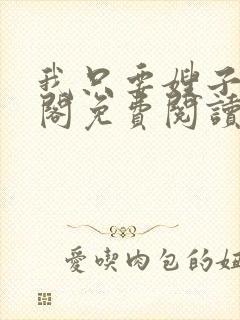 我只要嫂子
閣免費閱讀
愛喫肉包的妞